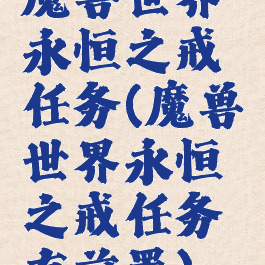 魔兽世界
永恒之戒
任务(魔兽
世界永恒
之戒任务
有前置)